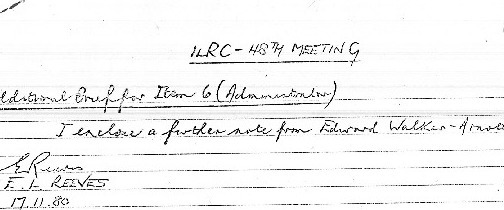 ILRC - 48TH MEETING
Additional Brief for Item 6 (Administration)
I enclose a further note from Edward Walker-Arnott
E Reeves
E. L REEVES
17.11.80